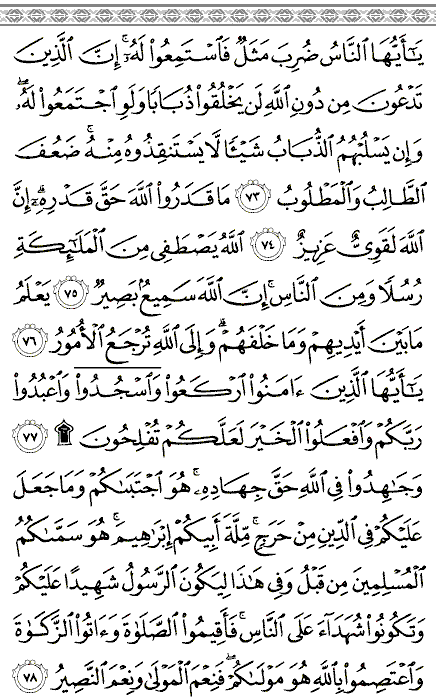 يَٰٓأَيُّهَا ٱلنَّاسُ ضُرِبَ مَثَلٌ فَٱسْتَمِعُوا۟ لَهُۥٓ ۚ إِنَّ ٱلَّذِينَ
تَدْعُونَ مِن دُونِ ٱللَّهِ لَن يَخْلُقُوا۟ ذُبَابًا وَلَوِ ٱجْتَمَعُوا۟ لَهُۥ ۖ
وَإِن يَسْلُبْهُمُ ٱلذُّبَابُ شَيْـًٔا لَّا يَسْتَنقِذُوهُ مِنْهُ ۚ ضَعُفَ
ٱلطَّالِبُ وَٱلْمَطْلُوبُ ٧٣ مَا قَدَرُوا۟ ٱللَّهَ حَقَّ قَدْرِهِۦٓ ۗ إِنَّ
ٱللَّهَ لَقَوِىٌّ عَزِيزٌ ٧٤ ٱللَّهُ يَصْطَفِى مِنَ ٱلْمَلَٰٓئِكَةِ
رُسُلًا وَمِنَ ٱلنَّاسِ ۚ إِنَّ ٱللَّهَ سَمِيعٌۢ بَصِيرٌ ٧٥ يَعْلَمُ
مَا بَيْنَ أَيْدِيهِمْ وَمَا خَلْفَهُمْ ۗ وَإِلَى ٱللَّهِ تُرْجَعُ ٱلْأُمُورُ ٧٦
يَٰٓأَيُّهَا ٱلَّذِينَ ءَامَنُوا۟ ٱرْكَعُوا۟ وَٱسْجُدُوا۟ وَٱعْبُدُوا۟
رَبَّكُمْ وَٱفْعَلُوا۟ ٱلْخَيْرَ لَعَلَّكُمْ تُفْلِحُونَ ۩ ٧٧
وَجَٰهِدُوا۟ فِى ٱللَّهِ حَقَّ جِهَادِهِۦ ۚ هُوَ ٱجْتَبَىٰكُمْ وَمَا جَعَلَ
عَلَيْكُمْ فِى ٱلدِّينِ مِنْ حَرَجٍ ۚ مِّلَّةَ أَبِيكُمْ إِبْرَٰهِيمَ ۚ هُوَ سَمَّىٰكُمُ
ٱلْمُسْلِمِينَ مِن قَبْلُ وَفِى هَٰذَا لِيَكُونَ ٱلرَّسُولُ شَهِيدًا عَلَيْكُمْ
وَتَكُونُوا۟ شُهَدَآءَ عَلَى ٱلنَّاسِ ۚ فَأَقِيمُوا۟ ٱلصَّلَوٰةَ وَءَاتُوا۟ ٱلزَّكَوٰةَ
وَٱعْتَصِمُوا۟ بِٱللَّهِ هُوَ مَوْلَىٰكُمْ ۖ فَنِعْمَ ٱلْمَوْلَىٰ وَنِعْمَ ٱلنَّصِيرُ ٧٨